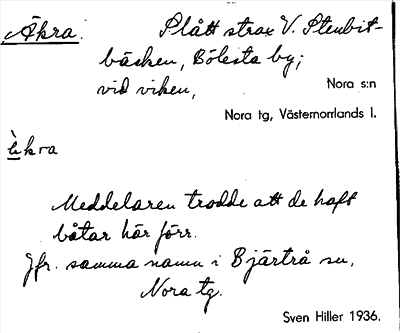 Åkra. Slätt strax V. Stenbit-
bäcken, Bölesta by;
vid viken, Nora s:n
Nora tg, Västernorrlands l.
èkra
Meddelaren trodde att de haft
båtar här förr.
Jfr. samma namn i Bjärtrå sn,
Nora tg.
Sven Hiller 1936.